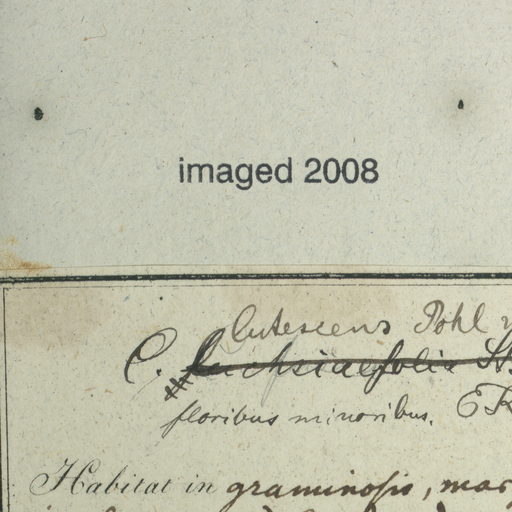 imaged 2008
lutescens Pohl
C. fuchsiaefolia
floribus minoribus.
Habitat in graminosis, mar